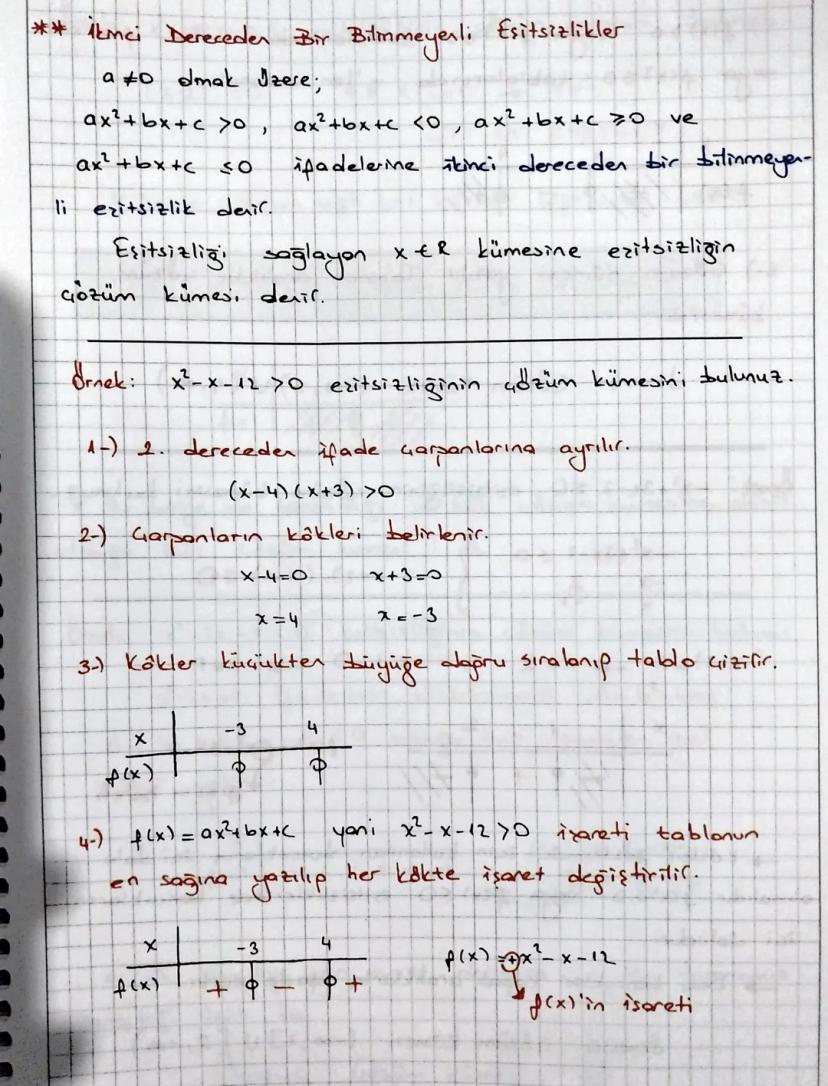 ** İkinci Dereceden Bir Bilinmeyenli Eşitsizlikler
a ≠ 0 olmak üzere;
ax²+bx+c >0 , ax²+bx+c <0 , ax²+bx+c ≥0 ve
ax²+bx+c ≤0 ifadelerine ikinci dereceden bir bilinmeyen-
li eşitsizlik denir.
Eşitsizliği sağlayan x ∈ R kümesine eşitsizliğin
çözüm kümesi denir.
Örnek: x²-x-12 >0 eşitsizliğinin çözüm kümesini bulunuz.
1-) 2. dereceden ifade çarpanlarına ayrılır.
(x-4)(x+3) >0
2-) Çarpanların kökleri belirlenir.
x-4=0 x+3=0
x=4 x=-3
3-) Kökler küçükten büyüğe doğru sıralanıp tablo çizilir.
x -3 4
f(x)
4-) f(x) = ax²+bx+c yani x²-x-12>0 işareti tablonun
en sağına yazılıp her kökte işaret değiştirilir.
x -3 4
f(x) + - +
f(x) =+x²-x-12
f(x)'in işareti